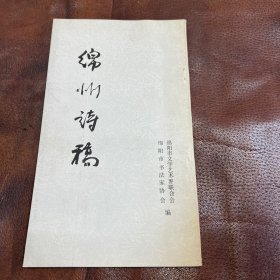 绵州诗稿
绵阳市文学艺术界联合会
绵阳市书法家协会
编